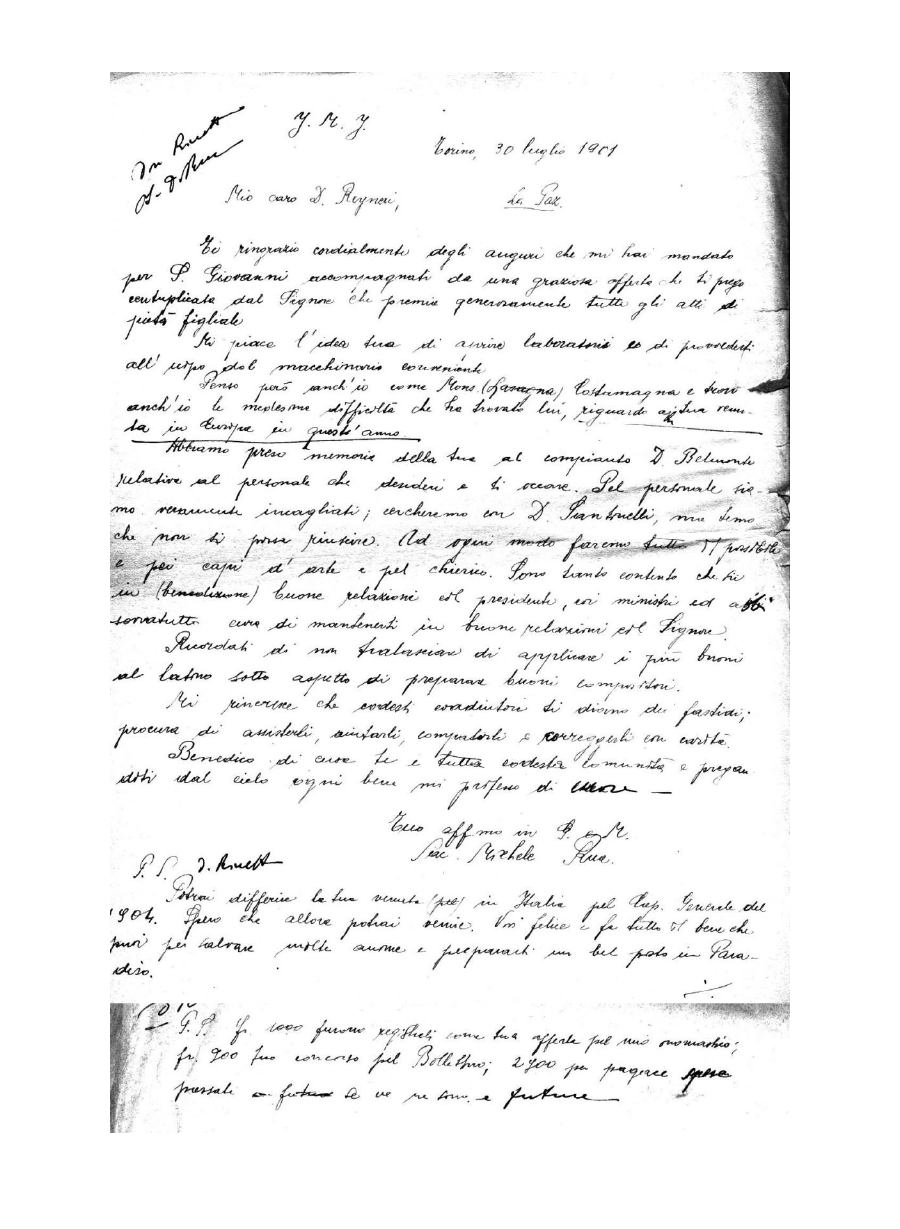 J. M. J.
Torino, 30 luglio 1901
Mio caro D. Reyneri,
La Paz.
Ti ringrazio cordialmente degli auguri che mi hai mandato
per S. Giovanni accompagnati da una graziosa offerta che ti prego
centuplicata dal Signore che premia generosamente tutti gli atti di
pietà figliale
Mi piace l'idea tua di aprire laboratorii e di provvederti
all'uopo del macchinario conveniente
Penso però anch'io come Mons. (Lasagna) Costamagna e trovo
anch'io le medesime difficoltà che ha trovato lui, riguardo tua venu-
ta in Europa in quest'anno
Abbiamo preso memoria della tua al compianto D. Belmonte
relativa al personale che desideri e ti occorre. Pel personale sia-
mo veramente incagliati; cercheremo con D. ma temo
che non si possa riuscire. Ad ogni modo faremo tutto il possibile
e pei capi d'arte e pel chierico. Sono tanto contento che sii
in (benedizione) buone relazioni col presidente, coi ministri ed abbi
sopratutto cura di mantenerti in buone relazioni col Signore.
Ricordati di non tralasciare di applicare i più buoni
al latino sotto aspetto di preparare buoni compositori.
Mi rincresce che codesti coadiutori ti diano dei fastidi;
procura di assisterli, aiutarli, compatirli e correggerli con carità.
Benedico di cuore te e tutta codesta comunità e pregan
doti dal cielo ogni bene mi professo di cuore —
Tuo affmo in G. e M.
Sac. Michele Rua.
P. S.
Potrai differire la tua venuta (pel) in Italia pel Cap. Generale del
1904. Spero che allora potrai venire. Vivi felice e fa tutto il bene che
puoi per salvare molte anime e prepararti un bel posto in Para-
diso.
P. S. Fr. 1000 furono registrati come tua offerta pel mio onomastico;
fr. 900 tuo concorso pel Bollettino; 2900 per pagare spese
passate o future se ve ne sono. e future